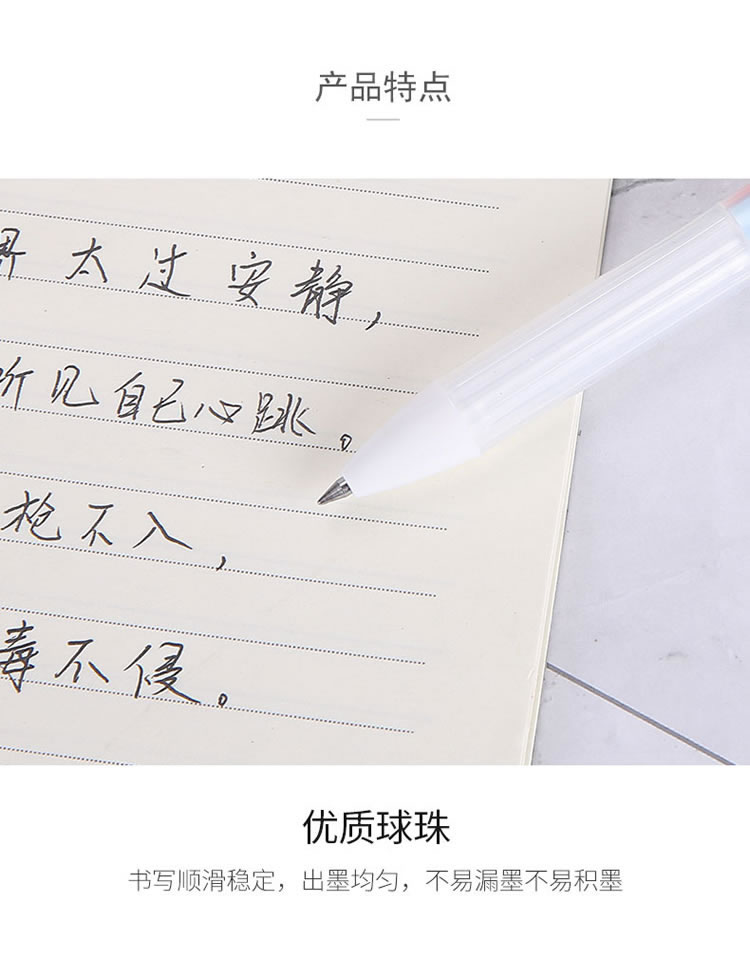 产品特点
界太过安静，
听见自己心跳。
枪不入，
毒不侵。
优质球珠
书写顺滑稳定，出墨均匀，不易漏墨不易积墨